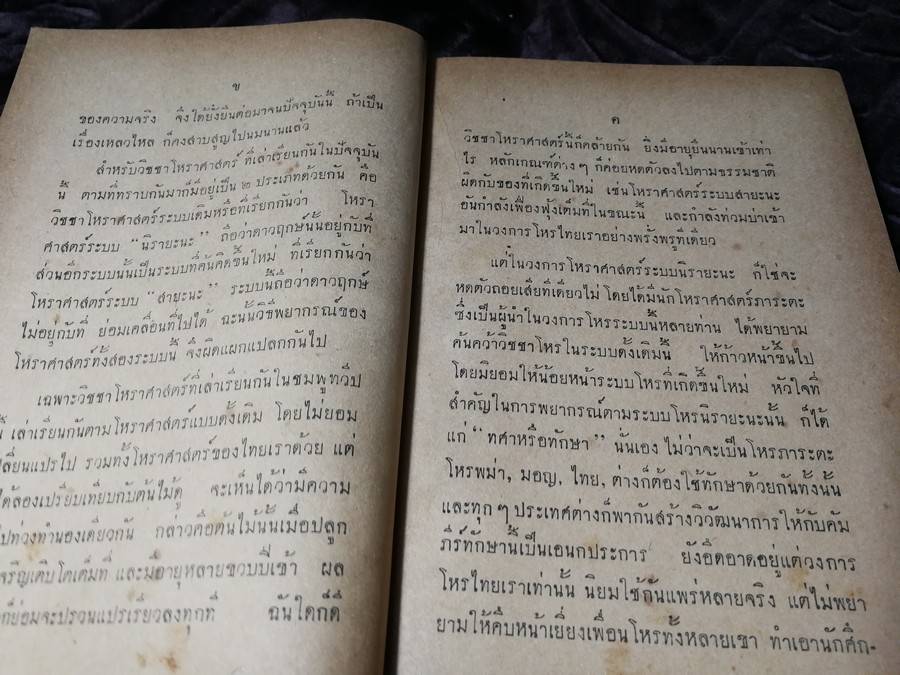 ข
ของความจริง จึงได้ยั่งยืนต่อมาจนปัจจุบันนี้ ถ้าเป็น
เรื่องเหลวไหล ก็คงสาบสูญไปนมนานแล้ว
สำหรับวิชชาโหราศาสตร์ ที่เล่าเรียนกันในปัจจุบัน
นี้ ตามที่ทราบกันมาก็มีอยู่เป็น ๒ ประเภทด้วยกัน คือ
วิชชาโหราศาสตร์ระบบเดิมหรือที่เรียกกันว่า โหรา
ศาสตร์ระบบ “นิรายะนะ” ถือว่าดาวฤกษ์นั้นอยู่กับที่
ส่วนอีกระบบนั้นเป็นระบบที่คันคิดขึ้นใหม่ ที่เรียกกันว่า
โหราศาสตร์ระบบ “สายะนะ” ระบบนี้ถือว่าดาวฤกษ์
ไม่อยู่กับที่ ย่อมเคลื่อนที่ไปได้ ฉะนั้นวิธีพยากรณ์ของ
โหราศาสตร์ทั้งสองระบบนี้ จึงผิดแผกแปลกกันไป
เฉพาะวิชชาโหราศาสตร์ที่เล่าเรียนกันในชมพูทวีป
นี้ เล่าเรียนกันตามโหราศาสตร์แบบดั้งเดิม โดยไม่ยอม
ลี่ยนแปรไป รวมทั้งโหราศาสตร์ของไทยเราด้วย แต่
ได้ลองเปรียบเทียบกับต้นไม้ดู จะเห็นได้ว่ามีความ
ไปท่วงทำนองเดียวกัน กล่าวคือต้นไม้นั้นเมื่อปลูก
จริญเติบโตเต็มที่ และมีอายุหลายขวบปีเข้า ผล
ก็ย่อมจะปรวนแปรเรียวลงทุกที ฉันใดก็ดี
ค
วิชชาโหราศาสตร์นี้ก็คล้ายกัน ยิ่งมีอายุยืนนานเข้าเท่า
ไร หลักเกณฑ์ต่างๆ ก็ค่อยหดตัวลงไปตามธรรมชาติ
ผิดกับของที่เกิดขึ้นใหม่ เช่นโหราศาสตร์ระบบสายะนะ
อันกำลังเฟื่องฟุ้งเต็มที่ในขณะนี้ และกำลังท่วมบ่าเข้า
มาในวงการโหรไทยเราอย่างพรั่งพรูทีเดียว
แต่ในวงการโหราศาสตร์ระบบนิรายะนะ ก็ใช่จะ
หดตัวถอยเสียทีเดียวไม่ โดยได้มีนักโหราศาสตร์ภาระตะ
ซึ่งเป็นผู้นำในวงการโหรระบบนี้หลายท่าน ได้พยายาม
ค้นคว้าวิชชาโหรในระบบดั้งเดิมนี้ ให้ก้าวหน้าขึ้นไป
โดยมิยอมให้น้อยหน้าระบบโหรที่เกิดขึ้นใหม่ หัวใจที่
สำคัญในการพยากรณ์ตามระบบโหรนิรายะนะนั้น ก็ได้
แก่ “ทศาหรือทักษา” นั่นเอง ไม่ว่าจะเป็นโหรภาระตะ
โหรพม่า, มอญ, ไทย, ต่างก็ต้องใช้ทักษาด้วยกันทั้งนั้น
และทุกๆ ประเทศต่างก็พากันสร้างวิวัฒนาการให้กับคัม
ภีร์ทักษานี้เป็นเอนกประการ ยังอืดอาดอยู่แต่วงการ
โหรไทยเราเท่านั้น นิยมใช้กันแพร่หลายจริง แต่ไม่พยา
ยามให้คืบหน้าเยี่ยงเพื่อนโหรทั้งหลายเขา ทำเอานักศึก-